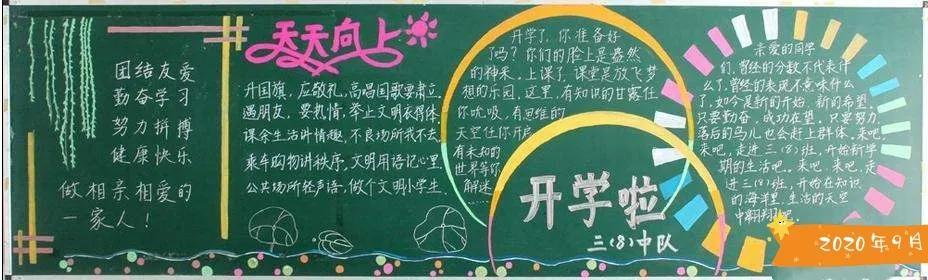 团结友爱
勤奋学习
努力拼搏
健康快乐
做相亲相爱的
一家人！
天天向上
升国旗，应敬礼，高唱国歌要肃立。
遇朋友，要热情，举止文明衣得体
课余生活讲情趣，不良场所我不去。
乘车购物讲秩序，文明用语记心里
公共场所轻声语，做个文明小学生。
开学了，你准备好
了吗？你们的脸上是盎然
的神采。上课了，课堂是放飞梦
想的乐园，这里，有知识的甘露任
你吮吸，有思维的
天空任你开启
有未知的
世界等你
解迷
开学啦
三(8)中队
亲爱的同学
们，曾经的分数不代表什
么了，曾经的表现不意味什么
了，如今是新的开始，新的希望。
只要勤奋，成功在望。只要努力，
落后的鸟儿也会赶上群体。来吧，
来吧，走进三(8)班，开始新学
期的生活吧。来吧，来吧，走
进三(8)班，开始在知识
的海洋里，生活的天空
中翱翔吧
2020年9月